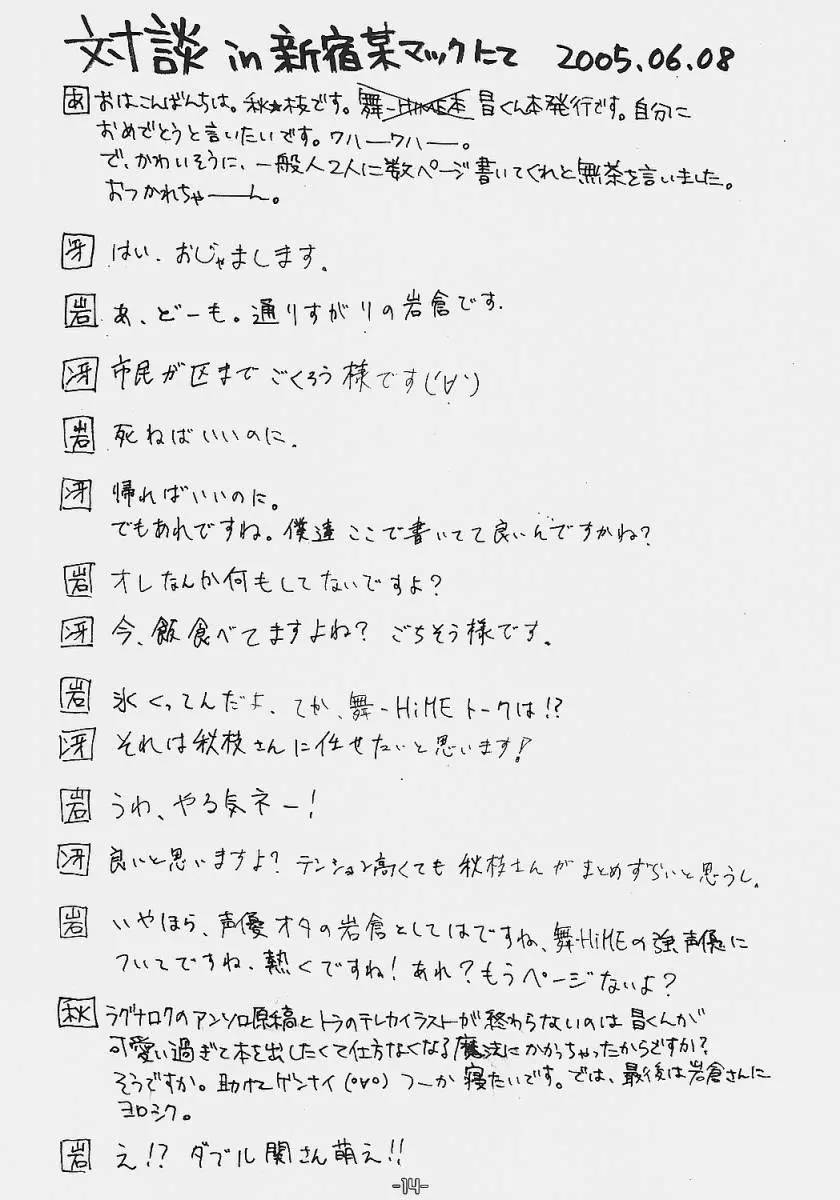 対談 in 新宿某マックにて 2005.06.08
あ おはこんばんちは。秋★枝です。舞-HiME本 昌くん本発行です。自分に
おめでとうと言いたいです。ワハーワハー。
で、かわいそうに、一般人2人に数ページ書いてくれと無茶を言いました。
おつかれちゃーーん。
冴 はい、おじゃまします。
岩 あ、どーも。通りすがりの岩倉です。
冴 市民が区までごくろう様です('∀')
岩 死ねばいいのに。
冴 帰ればいいのに。
でもあれですね。僕達ここで書いてて良いんですかね?
岩 オレなんか何もしてないですよ?
冴 今、飯食べてますよね? ごちそう様です。
岩 氷くってんだよ、てか、舞-HiMEトークは!?
冴 それは秋枝さんに任せたいと思います!
岩 うわ、やる気ネー!
冴 良いと思いますよ? テンション高くても秋枝さんがまとめずらいと思うし。
岩 いやほら、声優オタの岩倉としてはですね、舞-HiMEの強声優に
ついてですね、熱くですね! あれ?もうページないよ?
秋 ラグナロクのアンソロ原稿とトラのテレカイラストが終わらないのは昌くんが
可愛い過ぎて本を出したくて仕方なくなる魔法にかかっちゃったからですか?
そうですか。助けてゲンナイ(°∀°) つーか寝たいです。では、最後は岩倉さんに
ヨロシク。
岩 え!? ダブル関さん萌え!!
-14-